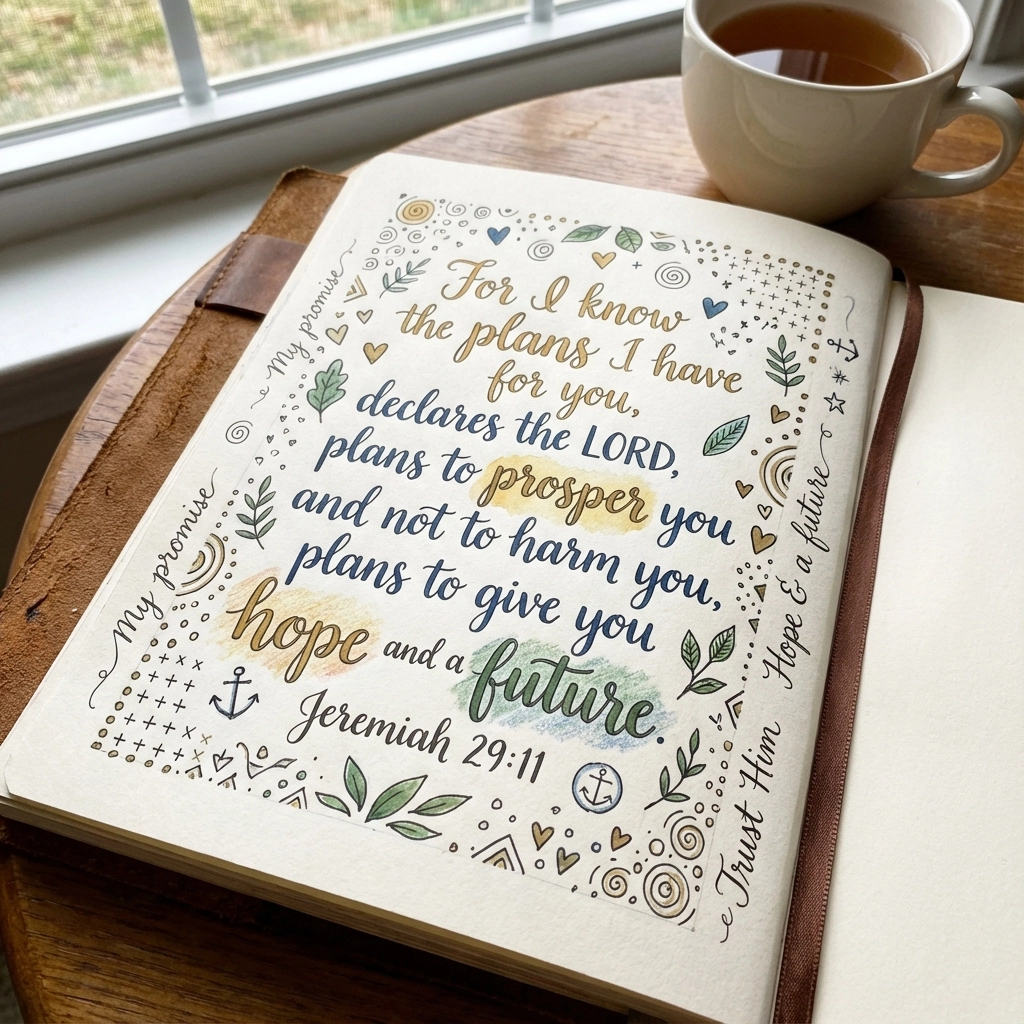 For I know
the plans I have
for you,
declares the LORD,
plans to prosper you
and not to harm you,
plans to give you
hope and a future.
Jeremiah 29:11
My promise
My promise
Trust Him Hope & a future